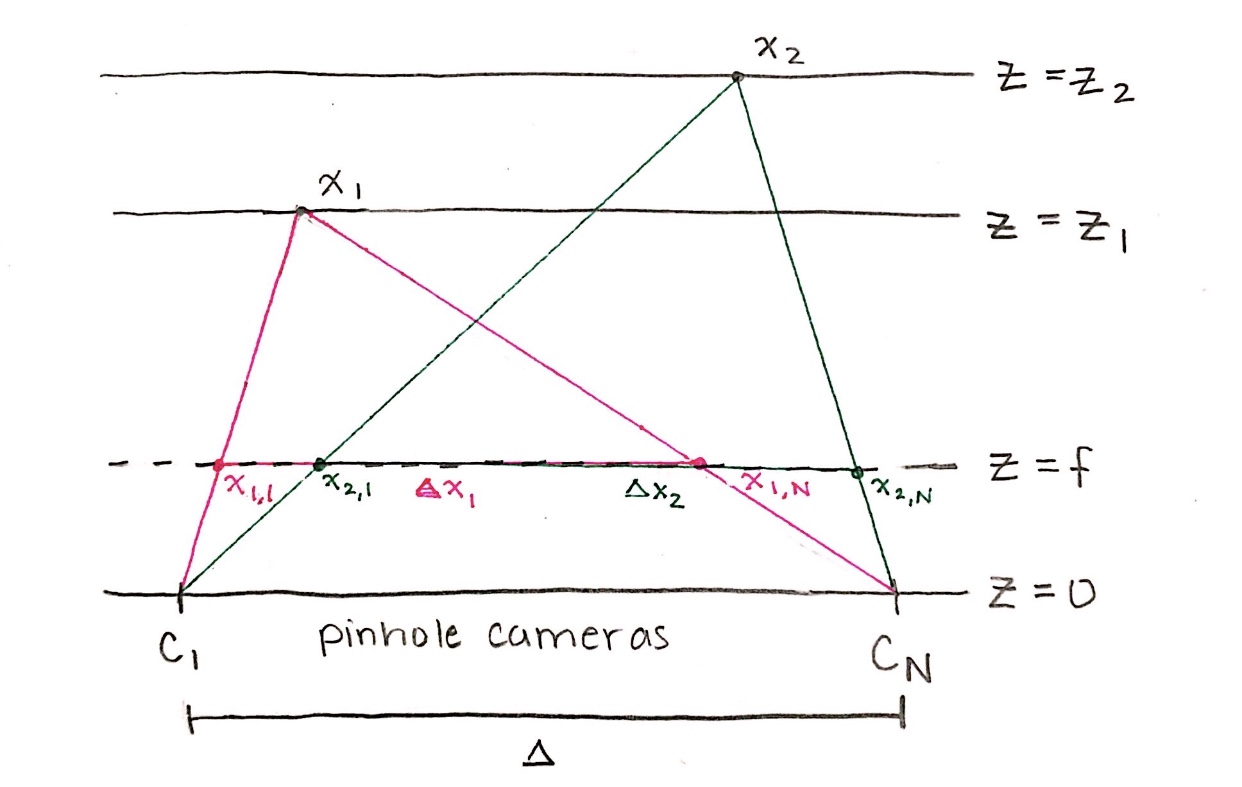 x₂
z = z₂
x₁
z = z₁
z = f
x₁,₁ x₂,₁ Δx₁ Δx₂ x₁,N x₂,N
z = 0
C₁ pinhole cameras C_N
Δ